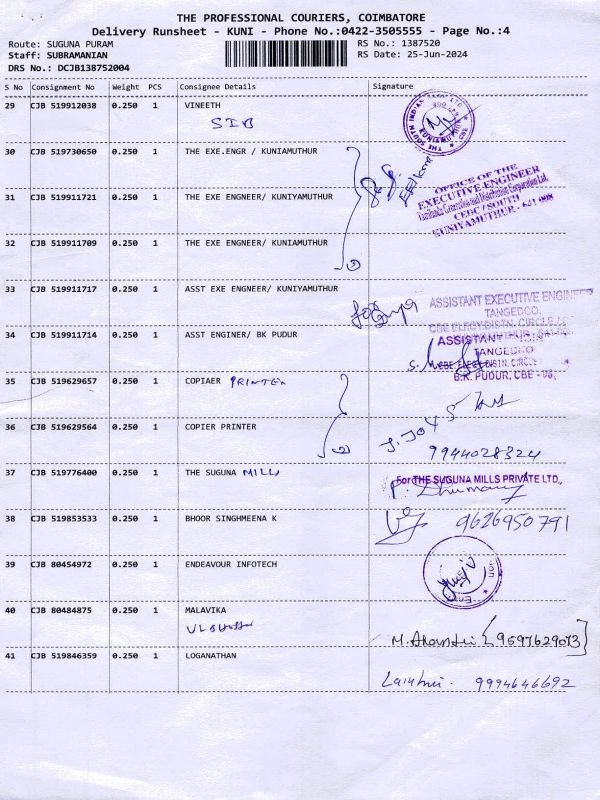 THE PROFESSIONAL COURIERS, COIMBATORE
Delivery Runsheet - KUNI - Phone No.:0422-3505555 - Page No.:4
Route: SUGUNA PURAM
RS No.: 1387520
Staff: SUBRAMANIAN
RS Date: 25-Jun-2024
DRS No.: DCJB138752004
S No Consignment No Weight PCS Consignee Details Signature
29 CJB 519912038 0.250 1 VINEETH
SIB
30 CJB 519730650 0.250 1 THE EXE.ENGR / KUNIAMUTHUR
OFFICE OF THE
EXECUTIVE ENGINEER
Tamilnadu Generation and Distribution Corporation Ltd.
CEDC / SOUTH
KUNIYAMUTHUR - 641 008
31 CJB 519911721 0.250 1 THE EXE ENGNEER/ KUNIYAMUTHUR
32 CJB 519911709 0.250 1 THE EXE ENGNEER/ KUNIAMUTHUR
33 CJB 519911717 0.250 1 ASST EXE ENGNEER/ KUNIYAMUTHUR
ASSISTANT EXECUTIVE ENGINEER
TANGEDCO.
CBE ELECY.DISTN. CIRCLE
34 CJB 519911714 0.250 1 ASST ENGINER/ BK PUDUR
ASSISTANT
TANGEDCO
CBE ELECY DISTN. CIRCLE
B.K. PUDUR, CBE - 08.
35 CJB 519629657 0.250 1 COPIAER PRINTEX
36 CJB 519629564 0.250 1 COPIER PRINTER
9944028324
37 CJB 519776400 0.250 1 THE SUGUNA MILLS
For THE SUGUNA MILLS PRIVATE LTD.,
38 CJB 519853533 0.250 1 BHOOR SINGHMEENA K
9626950791
39 CJB 80454972 0.250 1 ENDEAVOUR INFOTECH
40 CJB 80484875 0.250 1 MALAVIKA
9597629073
41 CJB 519846359 0.250 1 LOGANATHAN
9994646692